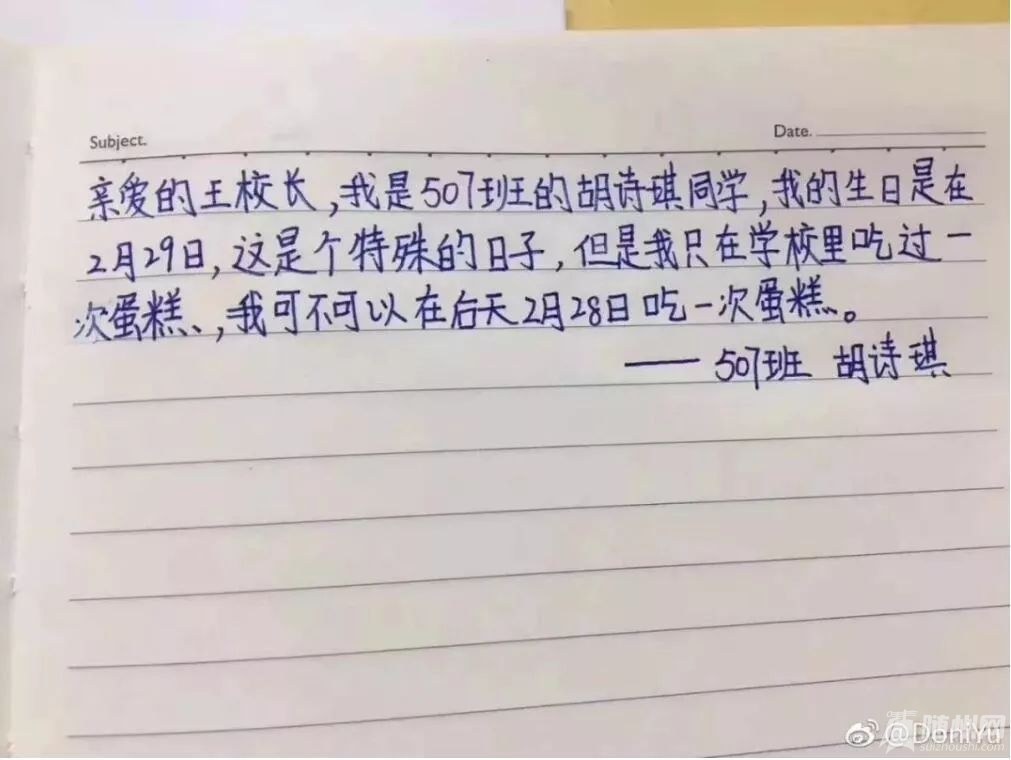 Subject.
Date.
亲爱的王校长,我是507班的胡诗琪同学,我的生日是在
2月29日,这是个特殊的日子,但是我只在学校里吃过一
次蛋糕、,我可不可以在后天2月28日吃一次蛋糕。
—— 507班 胡诗琪
随州网
@DoniYu
suizhoushi.com